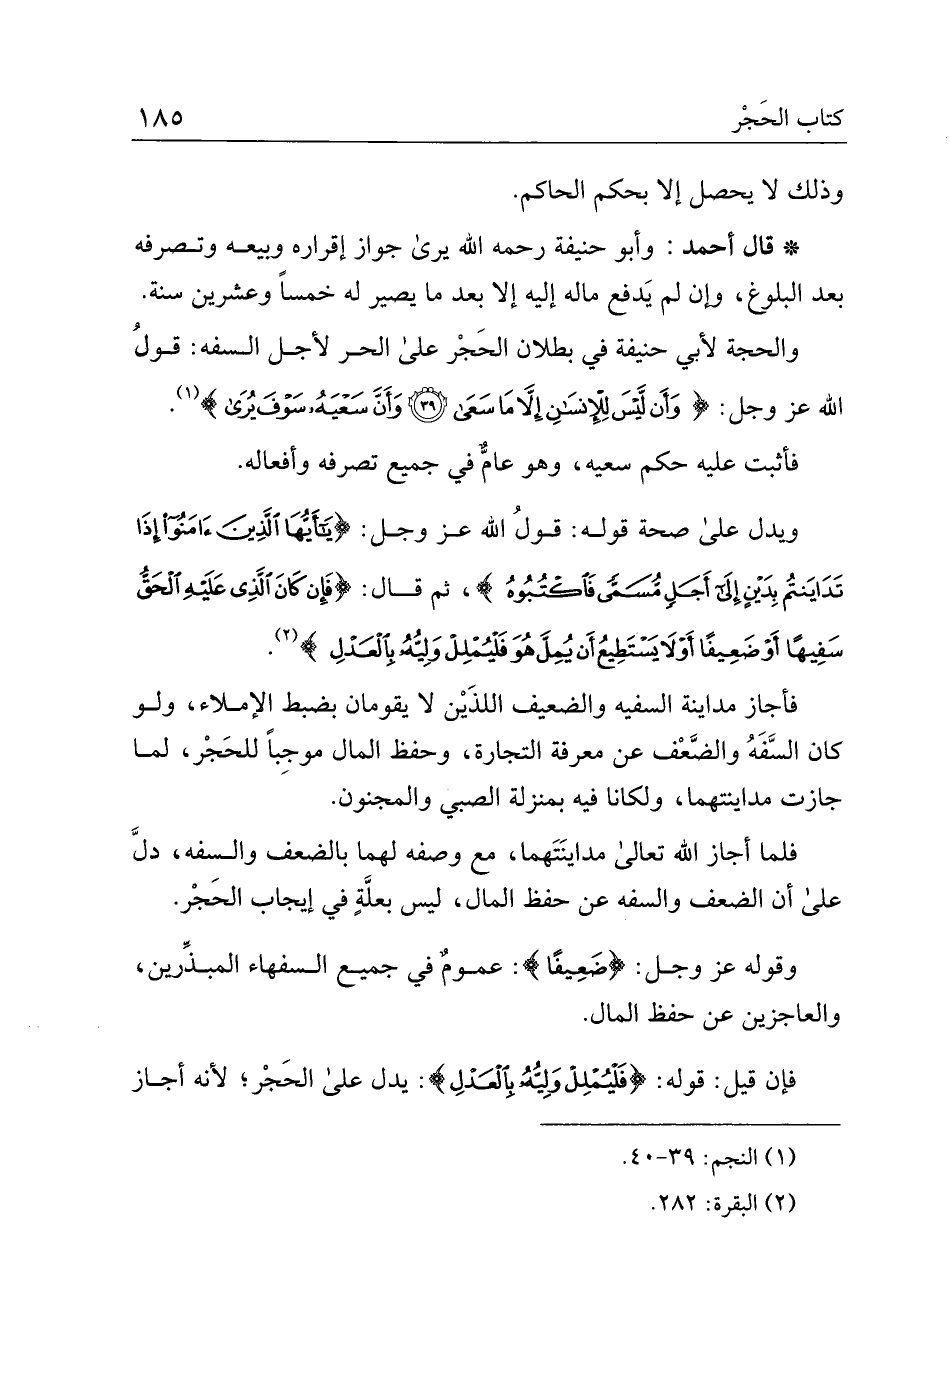 كتاب الحَجْر ١٨٥
وذلك لا يحصل إلا بحكم الحاكم.
* قال أحمد : وأبو حنيفة رحمه الله يرىٰ جواز إقراره وبيعه وتصرفه
بعد البلوغ، وإن لم يَدفع ماله إليه إلا بعد ما يصير له خمساً وعشرين سنة.
والحجة لأبي حنيفة في بطلان الحَجْر علىٰ الحر لأجل السفه: قولُ
الله عز وجل: ﴿ وَأَن لَّيْسَ لِلْإِنسَٰنِ إِلَّا مَا سَعَىٰ ٣٩ وَأَنَّ سَعْيَهُۥ سَوْفَ يُرَىٰ ﴾(١).
فأثبت عليه حكم سعيه، وهو عامٌّ في جميع تصرفه وأفعاله.
ويدل علىٰ صحة قوله: قولُ الله عز وجل: ﴿يَٰٓأَيُّهَا ٱلَّذِينَ ءَامَنُوٓا۟ إِذَا
تَدَايَنتُم بِدَيْنٍ إِلَىٰٓ أَجَلٍ مُّسَمًّى فَٱكْتُبُوهُ ﴾، ثم قال: ﴿فَإِن كَانَ ٱلَّذِى عَلَيْهِ ٱلْحَقُّ
سَفِيهًا أَوْ ضَعِيفًا أَوْ لَا يَسْتَطِيعُ أَن يُمِلَّ هُوَ فَلْيُمْلِلْ وَلِيُّهُۥ بِٱلْعَدْلِ ﴾(٢).
فأجاز مداينة السفيه والضعيف اللذَيْن لا يقومان بضبط الإملاء، ولو
كان السَّفَهُ والضَّعْف عن معرفة التجارة، وحفظ المال موجِباً للحَجْر، لما
جازت مداينتهما، ولكانا فيه بمنزلة الصبي والمجنون.
فلما أجاز الله تعالىٰ مداينَتَهما، مع وصفه لهما بالضعف والسفه، دلَّ
علىٰ أن الضعف والسفه عن حفظ المال، ليس بعلَّةٍ في إيجاب الحَجْر.
وقوله عز وجل: ﴿ضَعِيفًا ﴾: عمومٌ في جميع السفهاء المبذِّرين،
والعاجزين عن حفظ المال.
فإن قيل: قوله: ﴿فَلْيُمْلِلْ وَلِيُّهُۥ بِٱلْعَدْلِ ﴾: يدل علىٰ الحَجْر؛ لأنه أجاز
(١) النجم: ٣٩-٤٠.
(٢) البقرة: ٢٨٢.